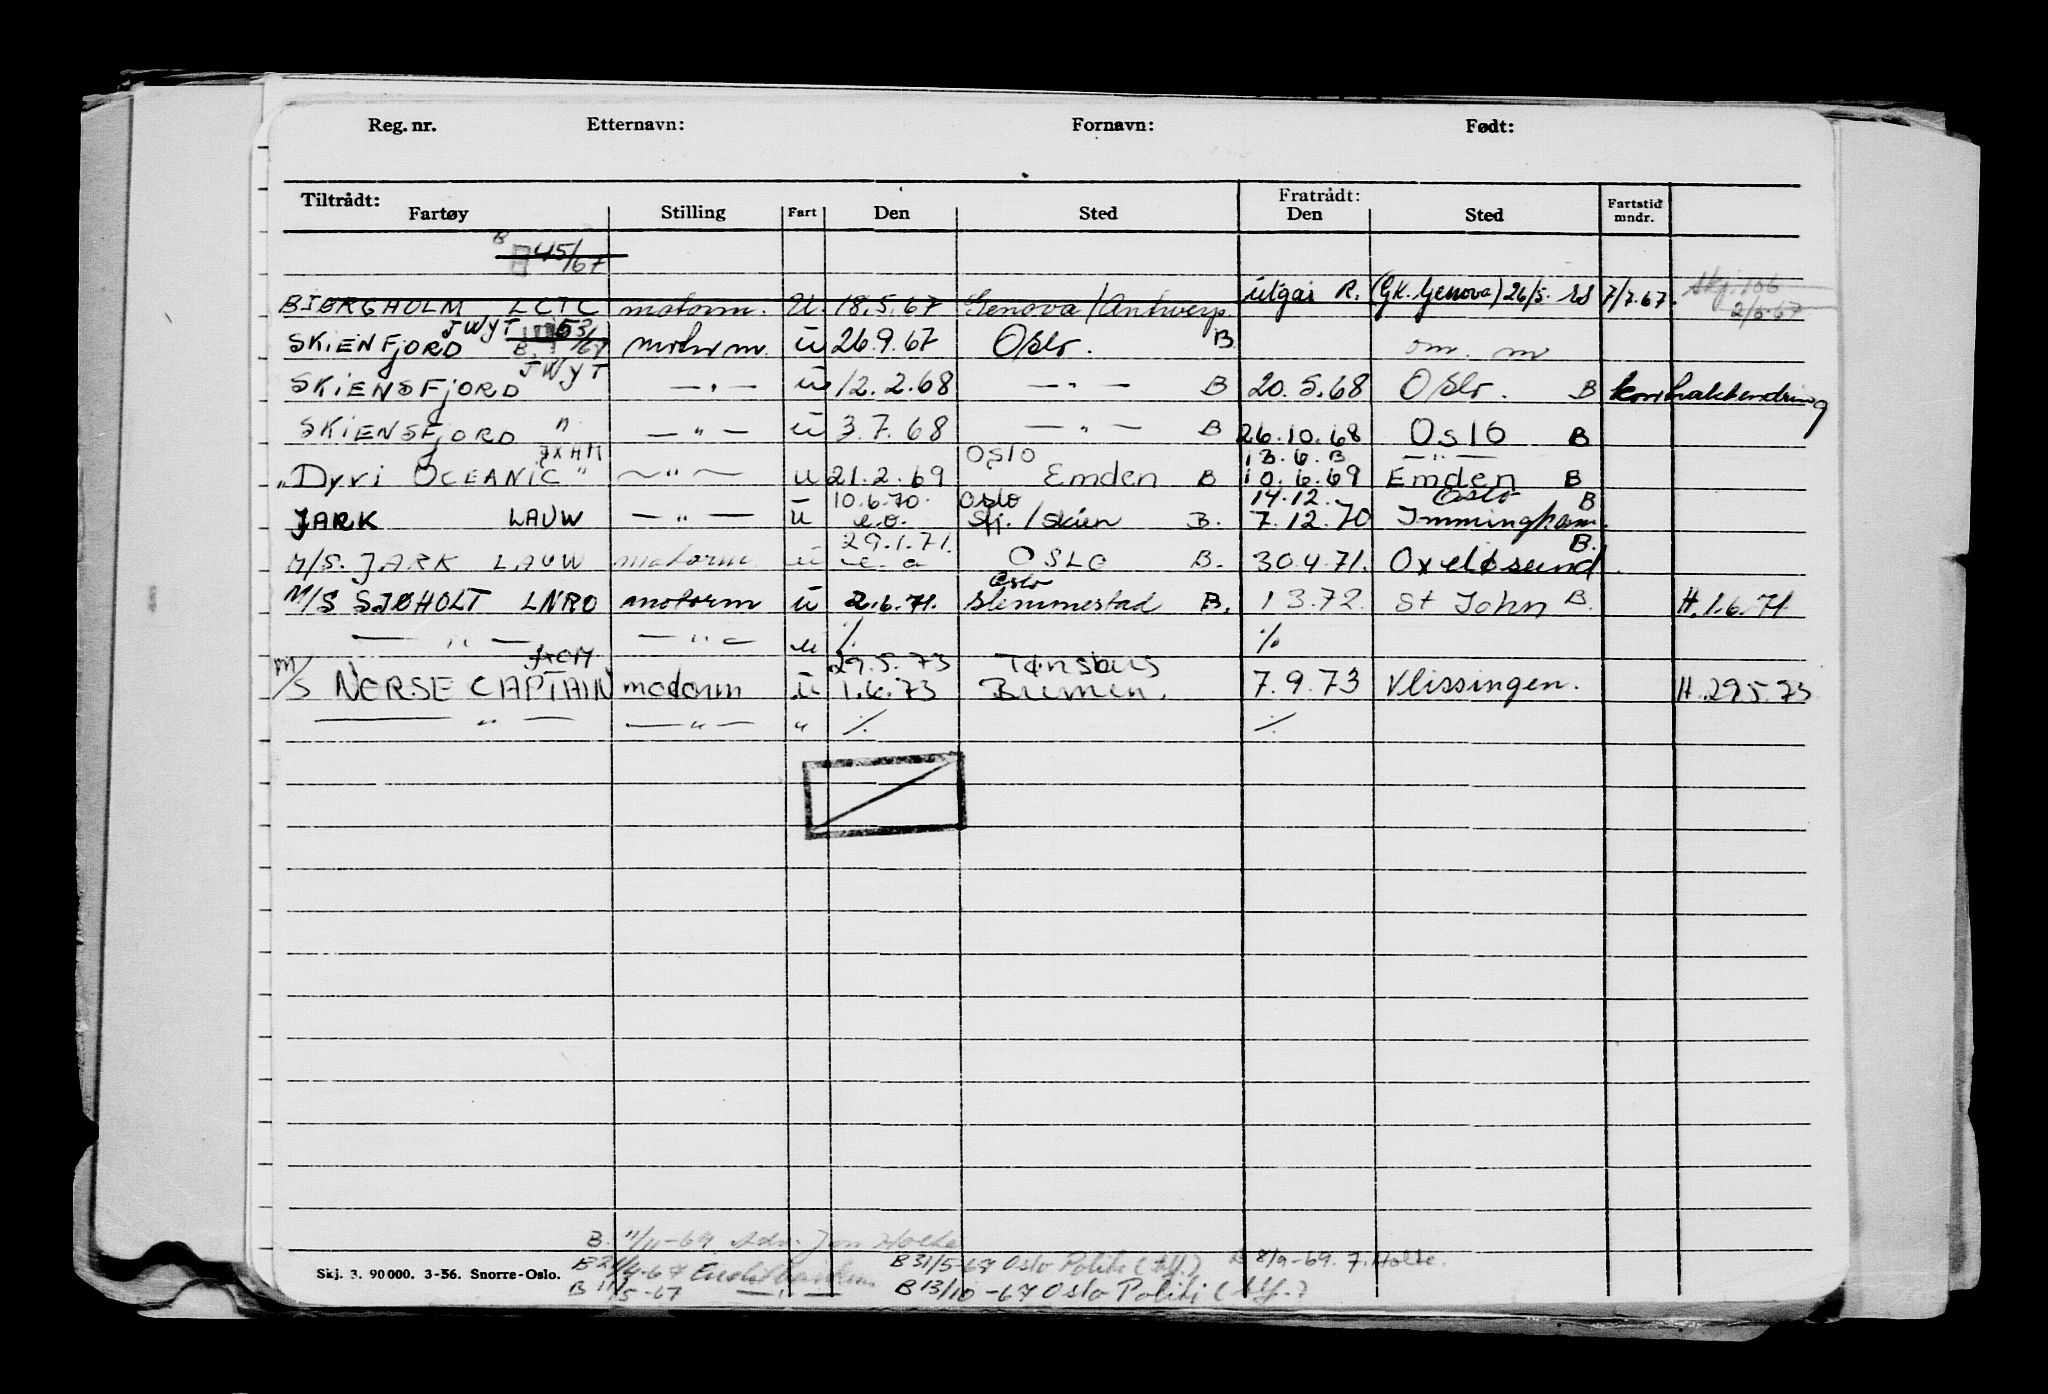 Reg. nr. Etternavn: Fornavn: Født:
Tiltrådt: Fratrådt:
Fartøy Stilling Fart Den Sted Den Sted Fartstid mndr.
B 45/67
BJØRGHOLM LCTC motorm. U. 18.5.67 Genova/Antwerp. utgår R. (GK. Genova) 26/5. 7/7.67. Skj. 106 2/6-67
SKIENFJORD JWYT B. 53/67 motorm. u 26.9.67 Oslo. B om. m
SKIENSFJORD JWYT —"— u 12.2.68 —"— B 20.5.68 Oslo. B kontraktendring
SKIENSFJORD " —"— u 3.7.68 —"— B 26.10.68 Oslo B
JXHM Oslo 13.6.B —"—
"Dyvi OCEANIC" —"— u 21.2.69 Emden B 10.6.69 Emden B
10.6.70. Oslo 14.12. Oslo B
JARK LAUW —"— u e.o. Sfj./skien B. 7.12.70 Immingham.
29.1.71. B.
M/S. JARK LAUW motorm u e.o OSLO B. 30.4.71. Oxeløsund.
Oslo
M/S SJØHOLT LNRO motorm u 2.6.71. Slemmestad B. 1 3.72. St John B. H. 1.6.71
—"— —"— u % %
29.5.73 Tønsberg
m/s NORSE CAPTAIN motorm u 1.6.73 Bremen. 7.9.73 Vlissingen. H. 29.5.73
—"— —"— " % %
B. 11/11-69 Adv. Jon Holte
B 21/4-67 B 31/5-67 Oslo Politi (Alf.) B 8/9-69. J. Holte.
Skj. 3. 90 000. 3-56. Snorre-Oslo.
B 11/5-67 —"— B 13/10-67 Oslo Politi (Alf.)